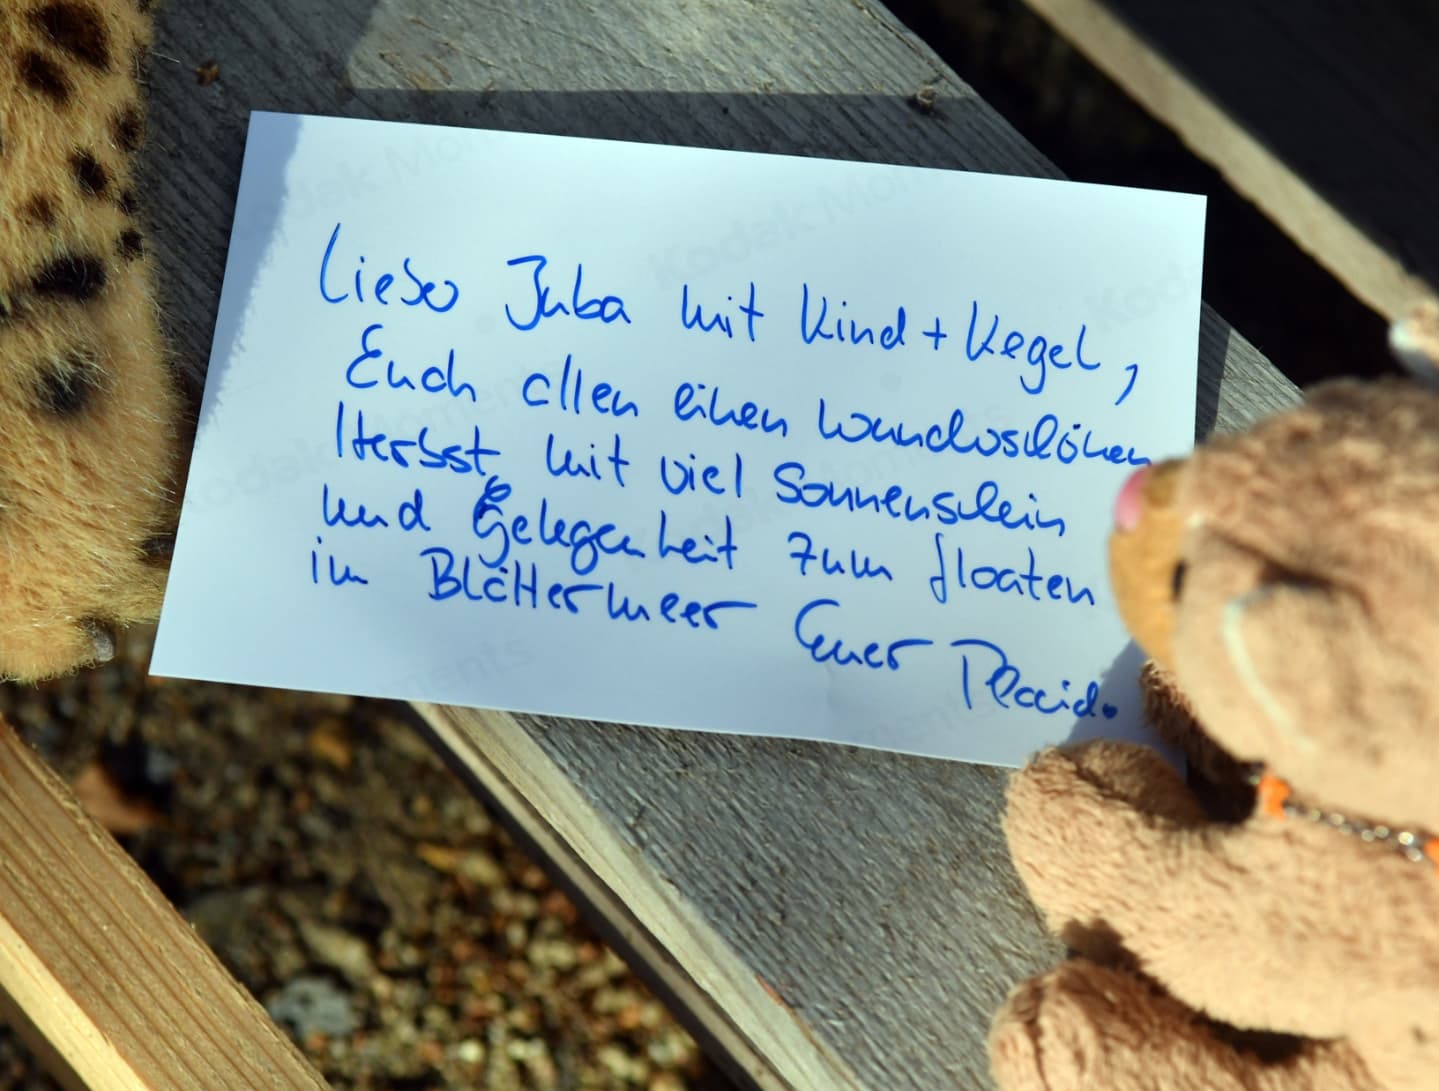 Lieber Juba mit Kind + Kegel,
Euch allen einen wunderschönen
Herbst mit viel Sonnenschein
und Gelegenheit zum floaten
im Blättermeer Euer Placido
Kodak Moments
Kodak Moments